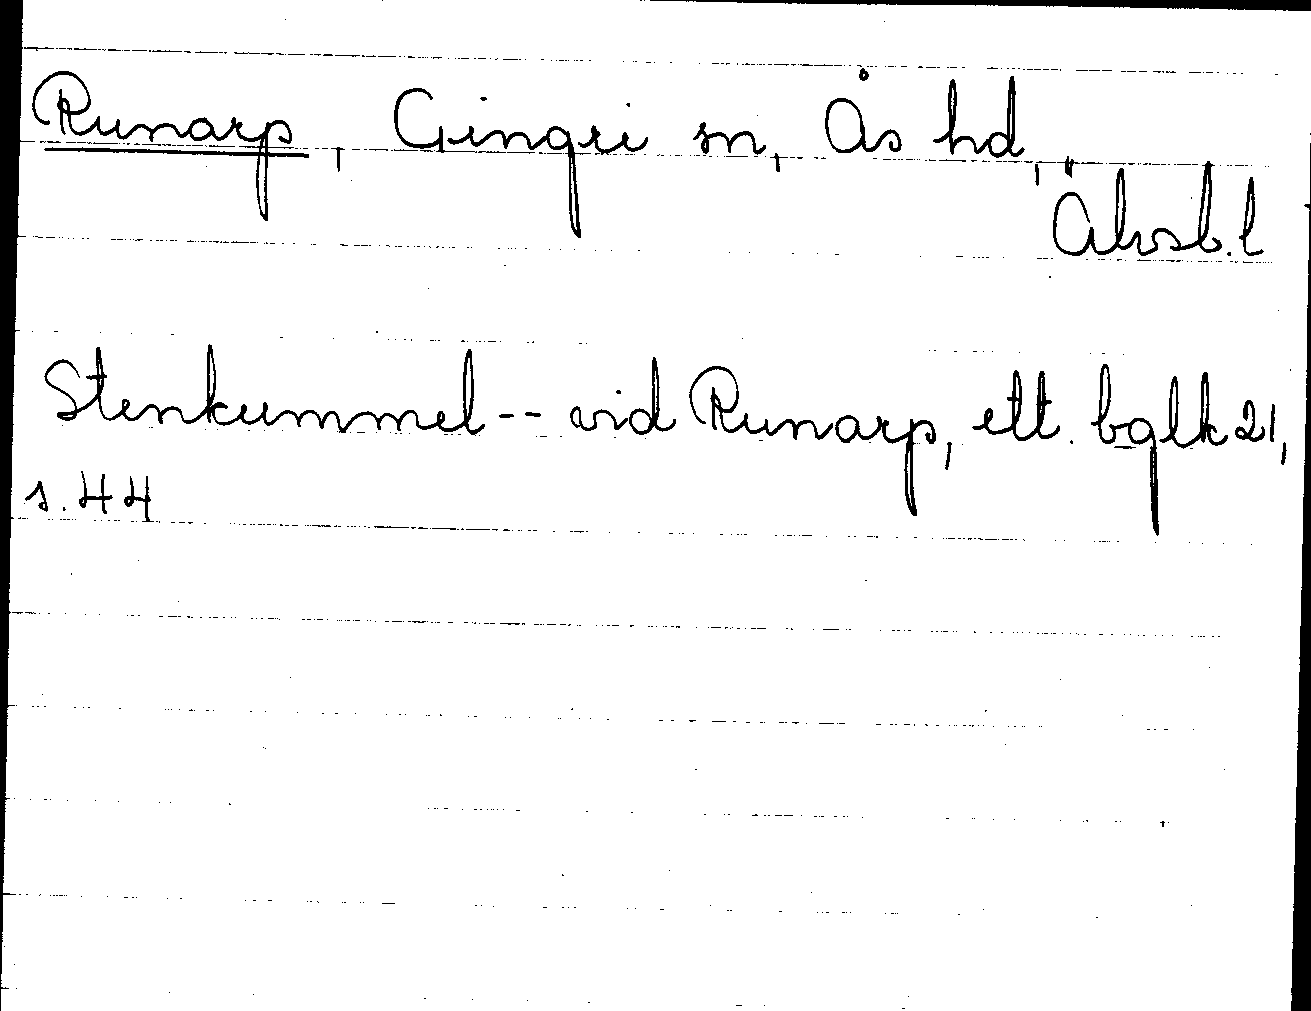 Runarp, Gingri sn, Ås hd,
Älvsb.l
Stenkummel -- vid Runarp, ett. bglk 21,
s. 44